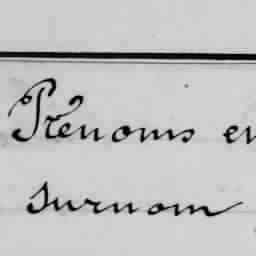 Prénoms et
surnom